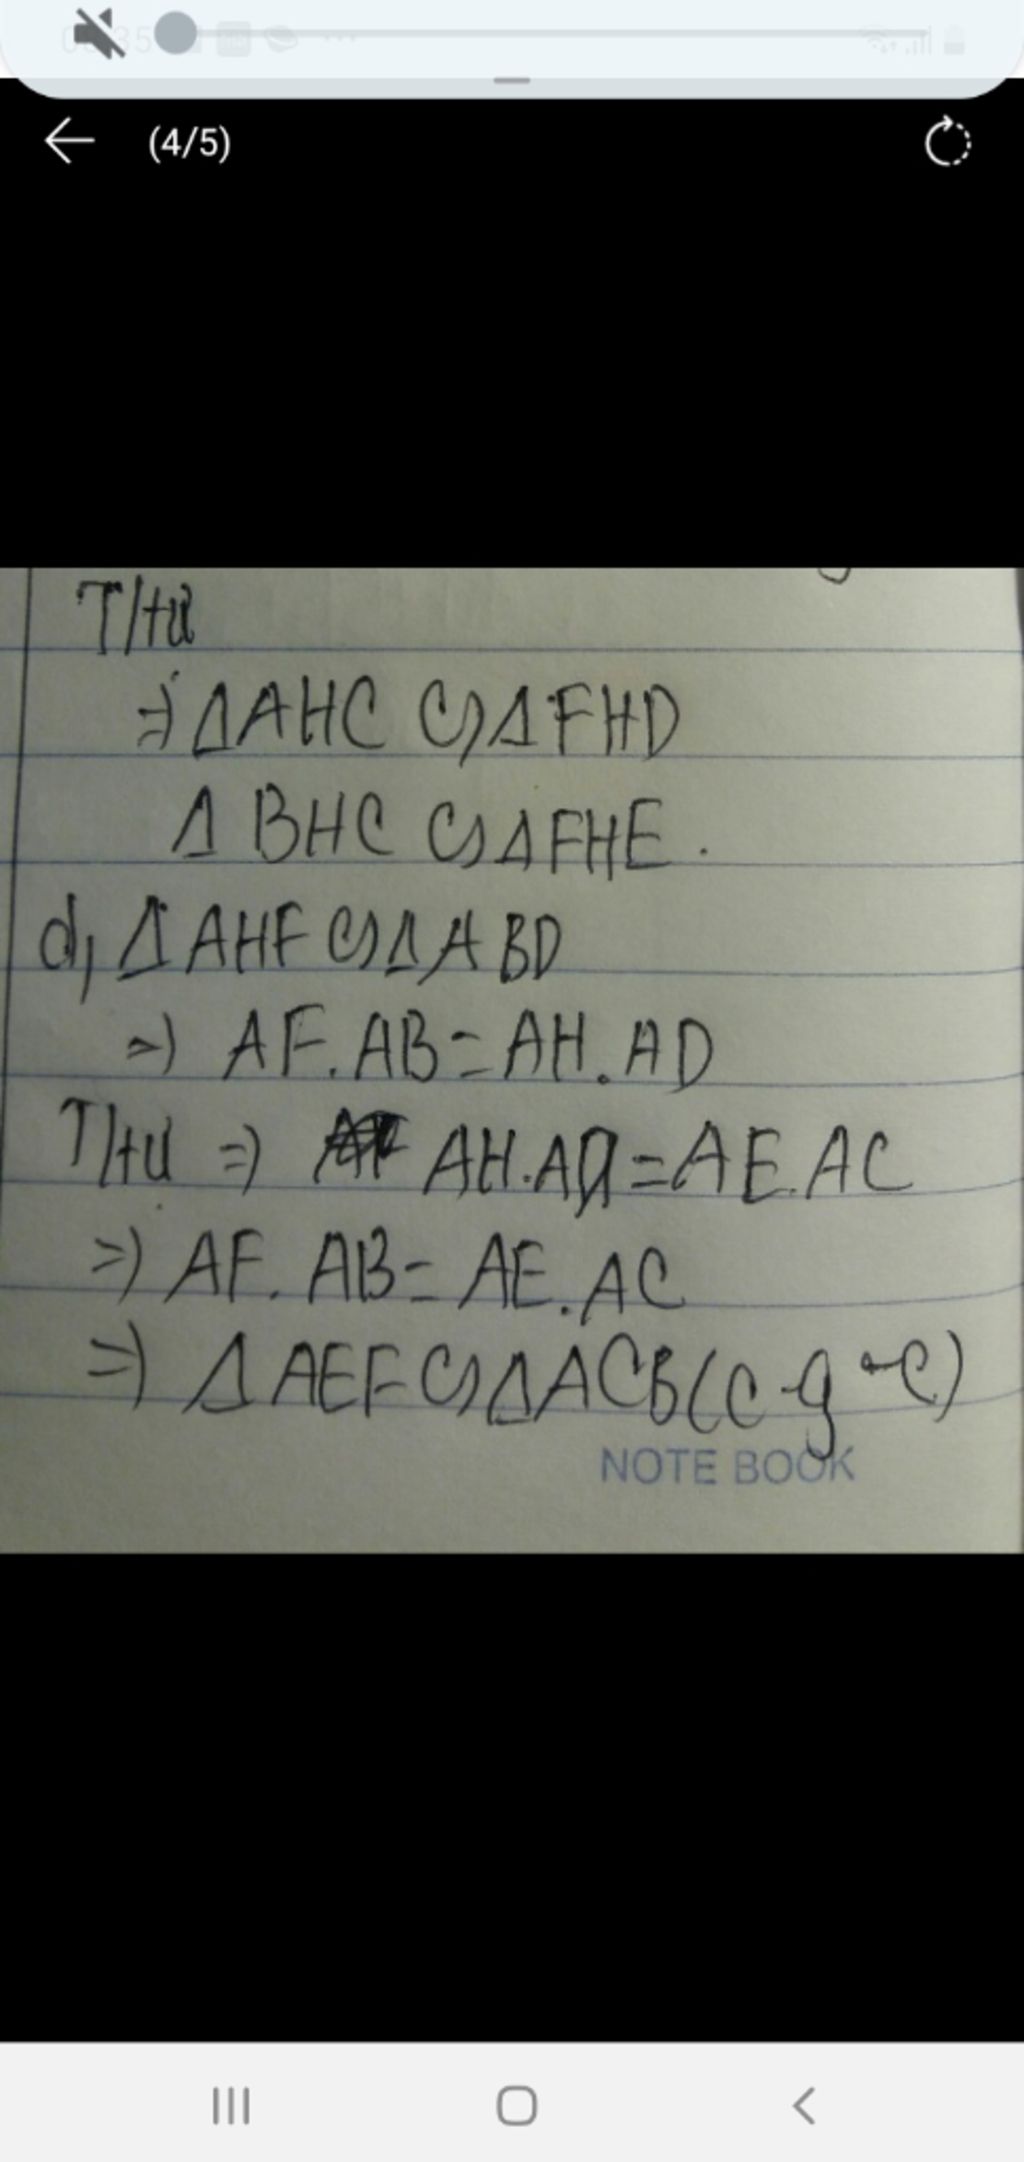 (4/5)
T/tự
=> ΔAHC ∽ ΔFHD
Δ BHC ∽ ΔFHE.
d, Δ AHF ∽ Δ ABD
=> AF.AB = AH.AD
T/tự => AH.AD = AE.AC
=> AF.AB = AE.AC
=> Δ AEF ∽ Δ ACB (c-g-c)
NOTE BOOK